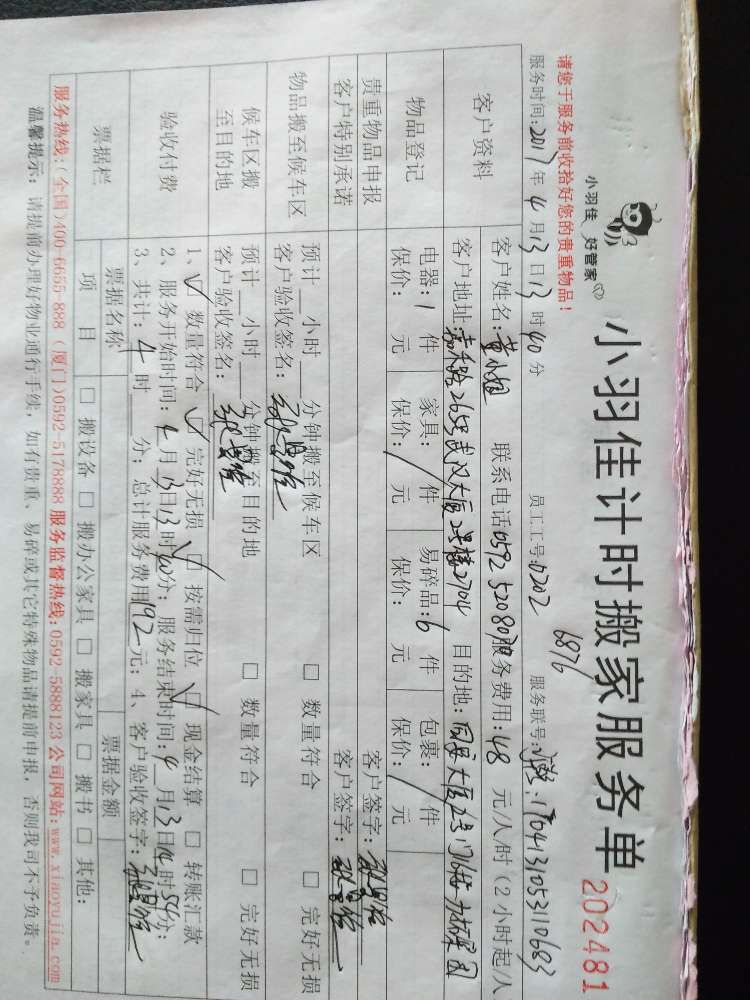 小羽佳 好管家
小羽佳计时搬家服务单
202481
请您于服务前收拾好您的贵重物品！
6876
服务时间:2017年4月13日13时40分 员工工号:0202 服务联号: 1704131053110683
客户资料
客户姓名:黄小姐 联系电话0592 52080 服务费用:48 元/人/时（2小时起/人
客户地址:嘉禾路265号武汉大厦2号楼2704 目的地:同安大厦2号门
物品登记
电器:1 件 家具:/ 件 易碎品:6 件 包裹:/ 件
保价: 元 保价: 元 保价: 元 保价: 元
贵重物品申报 客户签字:
客户特别承诺 客户签字:
物品搬至候车区
预计__小时__分钟搬至候车区 □ 数量符合 □ 完好无损
客户验收签名:
候车区搬至目的地
预计__小时__分钟搬至目的地 □ 数量符合 □ 完好无损
客户验收签名:
验收付费
1、☑ 数量符合 ☑ 完好无损 ☑ 按需归位 ☑ 现金结算 □ 转账汇款
2、服务开始时间:4月13日13时40分; 服务结束时间:4月13日14时54分;
3、共计:4时 分; 总计服务费用192元; 4、客户验收签字:
票据栏
票据名称 票据金额
项 目 □ 搬设备 □ 搬办公家具 □ 搬家具 □ 搬书 □ 其他:
服务热线:(全国)400-6655-888 (厦门)0592-5178888 服务监督热线:0592-5888123 公司网站:www.xiaoyujia.com
温馨提示: 请提前办理好物业通行手续, 如有贵重、易碎或其它特殊物品请提前申报, 否则我司不予负责。